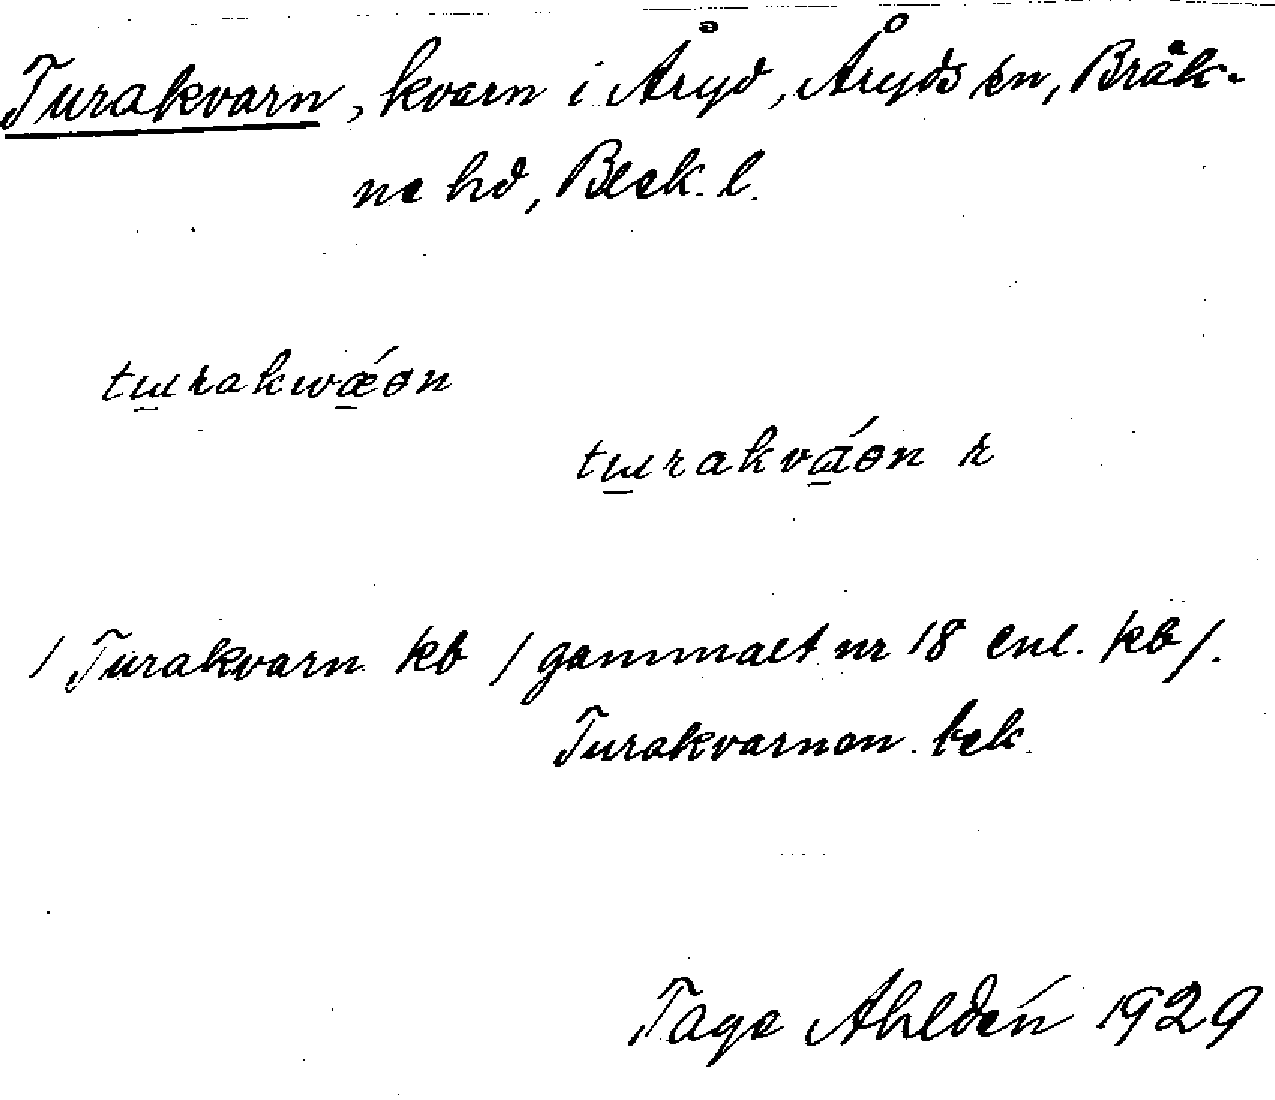 Turakvarn, kvarn i Åryd, Åryds sn, Bräk-
ne hd, Blek. l.
tɯrakwǽɵn
tɯrakváɵn r
/Turakvarn kb /gammalt nr 18 enl. kb/.
Turakvarnen bek.
Tage Ahldén 1929